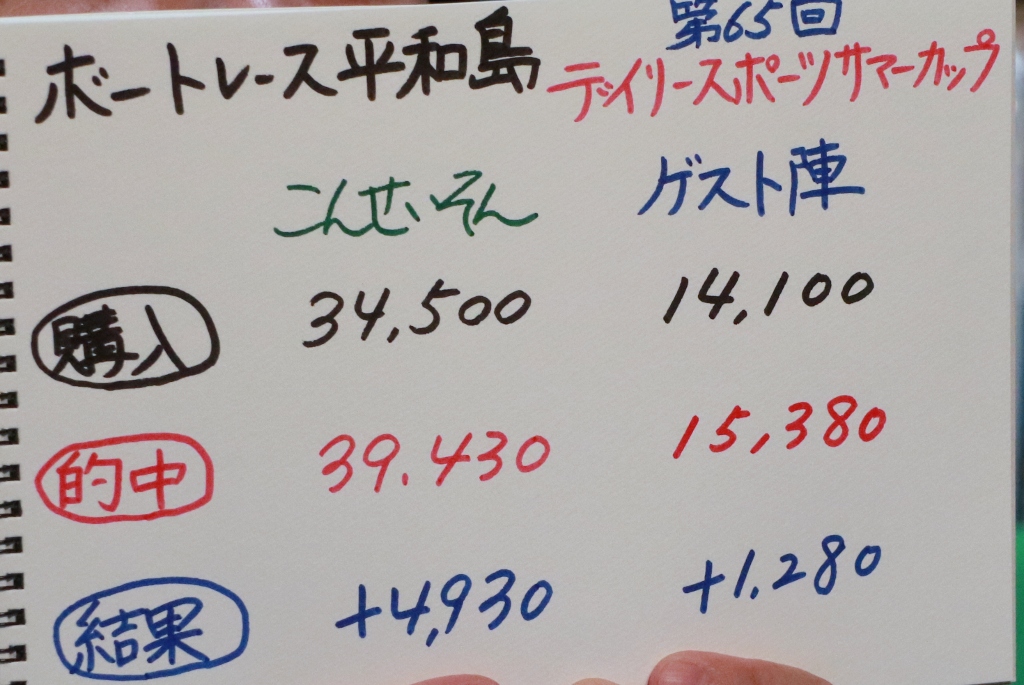 ボートレース平和島
第65回
デイリースポーツサマーカップ
こんせいそん ゲスト陣
購入 34,500 14,100
的中 39.430 15,380
結果 +4,930 +1.280